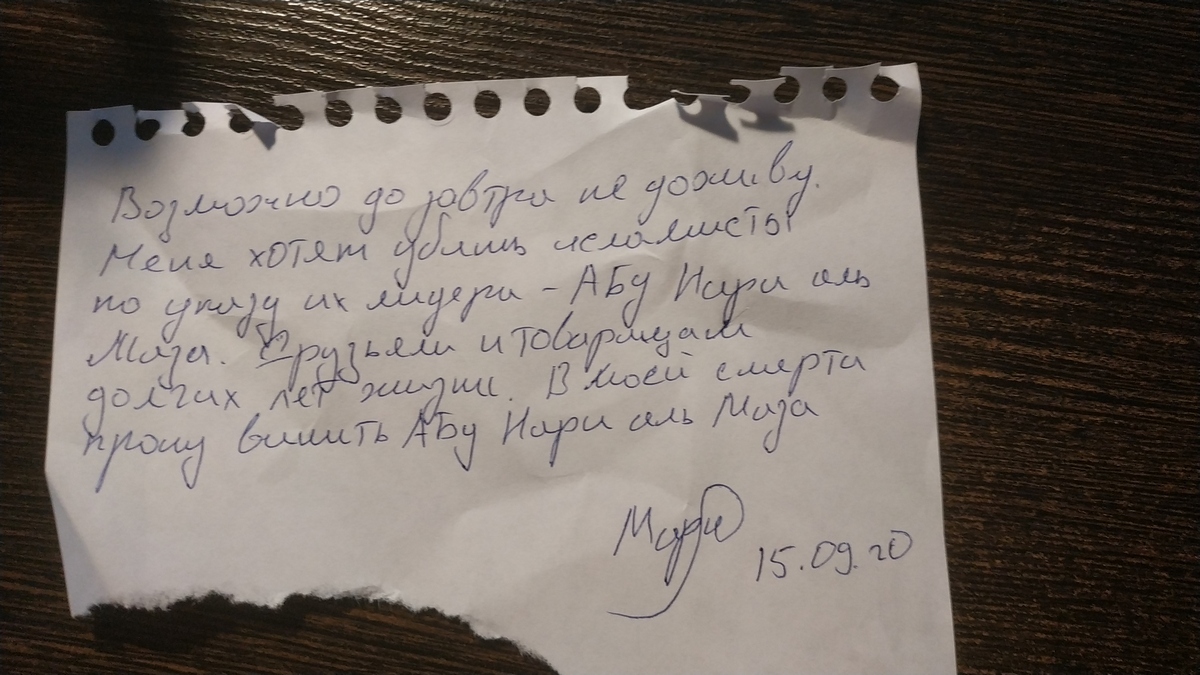 Возможно до завтра не доживу.
Меня хотят убить исламисты
по указу их лидера - Абу Нари аль
Маза. Друзьям и товарищам
долгих лет жизни. В моей смерти
прошу винить Абу Нари аль Маза
15.09.20